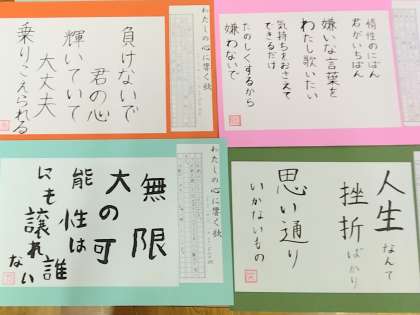 わたしの心に響く歌
負けないで
君の心
輝いていて
大丈夫
乗りこえられる
惰性のにばん
君がいちばん
嫌いな言葉を
わたし歌いたい
気持ちをおさえて
できるだけ
たのしくするから
嫌わないで
わたしの心に響く歌
無限
大の可
能性は誰
にも譲れ
ない
わたしの心に響く歌
人生なんて
挫折ばかり
思い通り
いかないもの